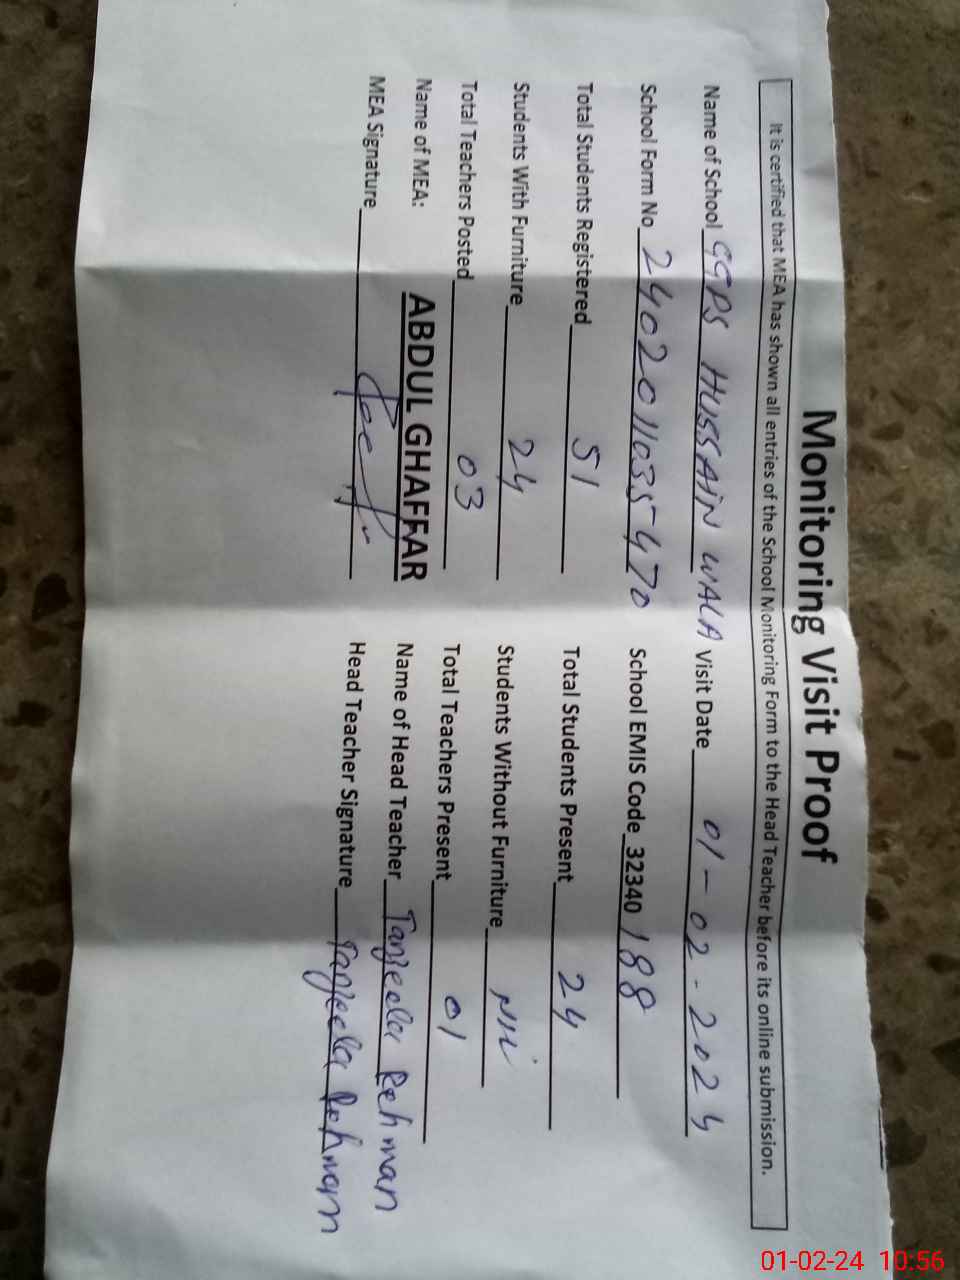 Monitoring Visit Proof
It is certified that MEA has shown all entries of the School Monitoring Form to the Head Teacher before its online submission.
Name of School GGPS HUSSAIN WALA Visit Date 01-02-2024
School Form No 2402011035470 School EMIS Code 32340188
Total Students Registered 51 Total Students Present 24
Students With Furniture 24 Students Without Furniture Nil
Total Teachers Posted 03 Total Teachers Present 01
Name of MEA: ABDUL GHAFFAR Name of Head Teacher Tanzeela Rehman
MEA Signature Head Teacher Signature Tanzeela Rehman
01-02-24 10:56